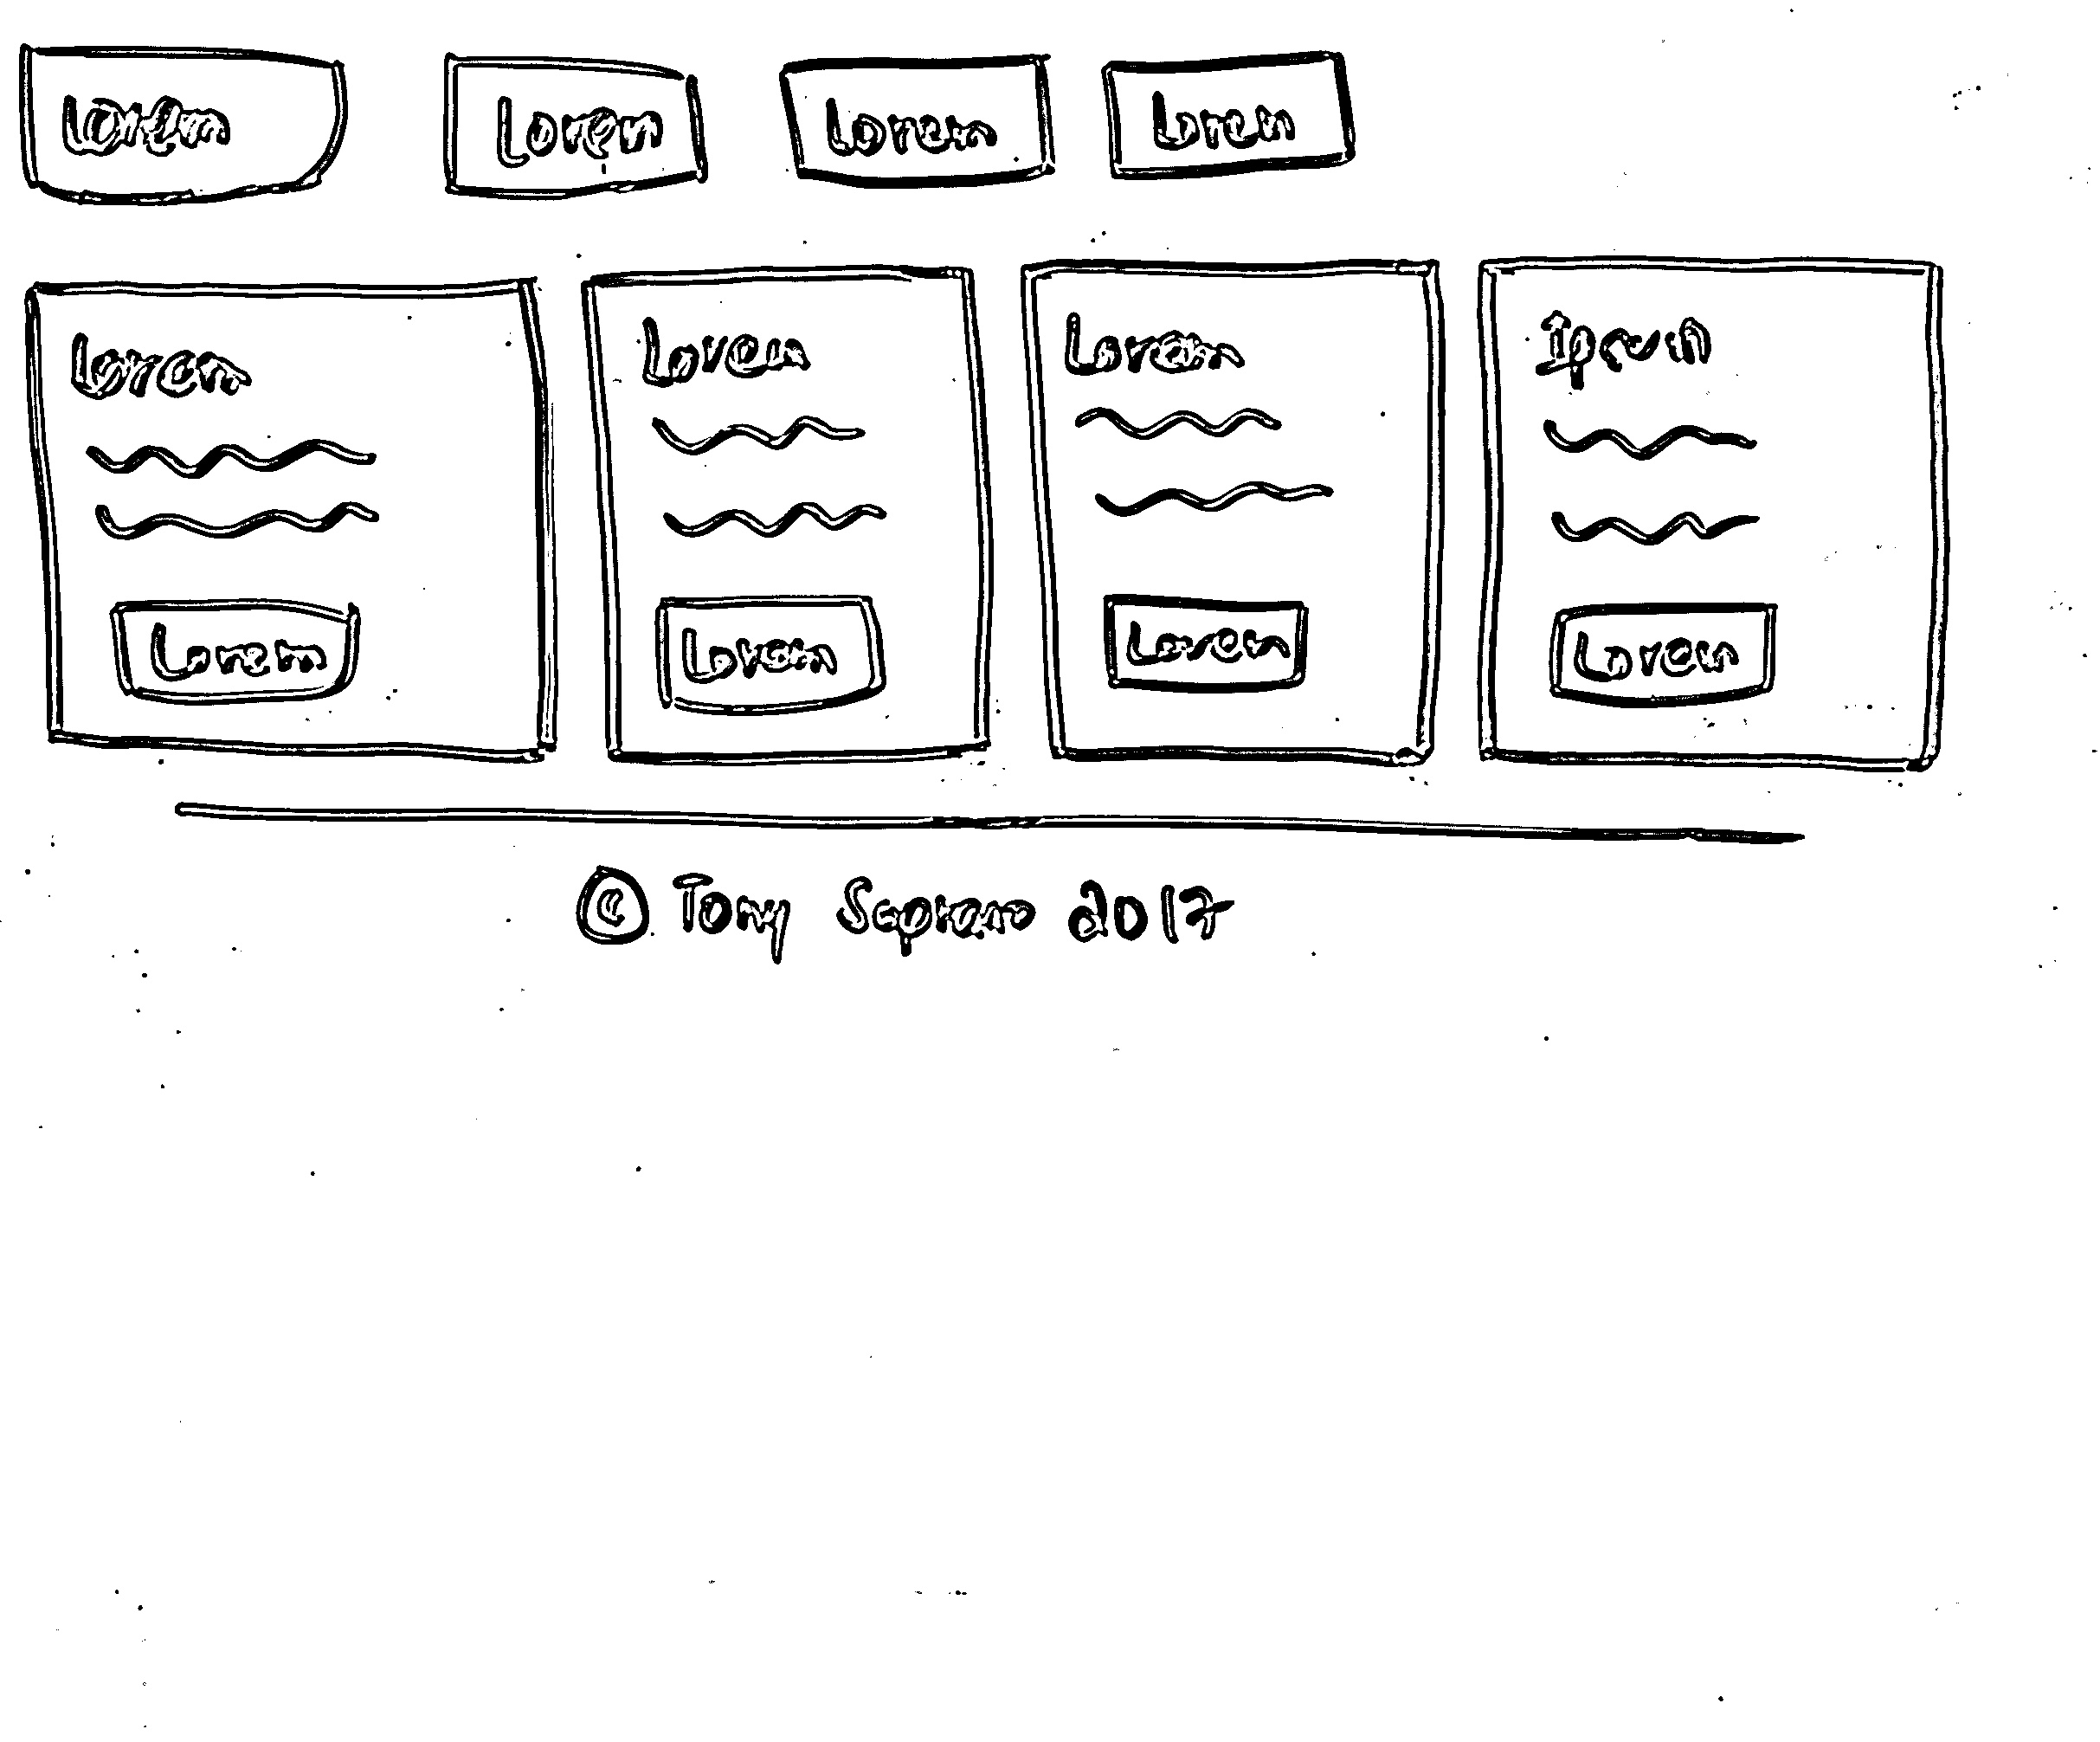 Lorem Lorem Lorem Loren
Lorem Lorem Lorem Ipsum
Lorem Lorem Loren Loren
© Tony Soprano 2017